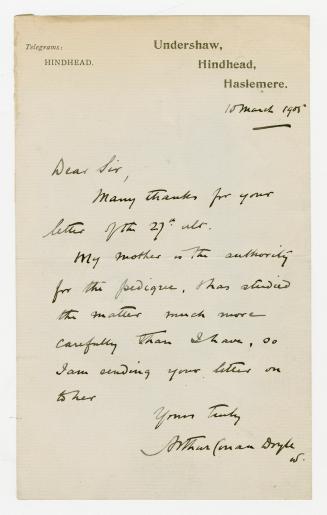 Telegrams:
HINDHEAD.
Undershaw,
Hindhead,
Haslemere.
10 March 1905
Dear Sir,
Many thanks for your
letter of the 27th ult.
My mother is the authority
for the pedigree, & has studied
the matter much more
carefully than I have, so
I am sending your letter on
to her
Yours truly
Arthur Conan Doyle